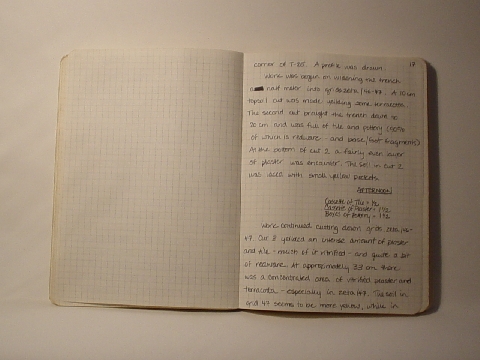 corner of T-85. A profile was drawn.
Work was begun on widening the trench
a half meter into grids zero/46-47. A 10cm
topsoil cut was made yielding some terracotta.
The second cut brought the trench down to
20 cm and was full of tile and pottery (100%
of which is redware - and base/foot fragments)
At the bottom of cut 2 a fairly even layer
of plaster was encounter. The soil in cut 2
was laced with small yellow pockets.
AFTERNOON
Cassette of Tile = 1 1/2
Cassette of Plaster = 1 1/2
Boxes of Pottery = 1 1/2
Work continued cutting down grids zero/46-
47. Cut 3 yielded an intense amount of plaster
and tile - much of it vitrified - and quite a bit
of redware. At approximately 33 cm there
was a concentrated area of vitrified plaster and
terracotta - especially in zero/47. The soil in
grid 47 seems to be more yellow, while in